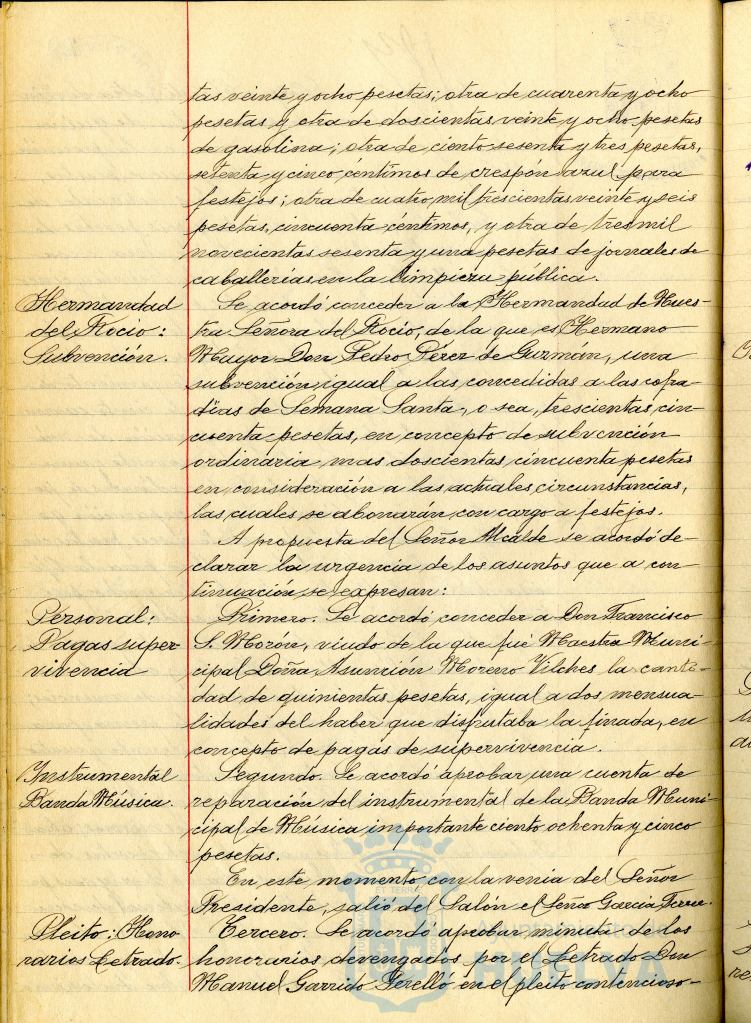 tas veinte y ocho pesetas; otra de cuarenta y ocho
pesetas y otra de doscientas veinte y ocho pesetas
de gasolina; otra de ciento sesenta y tres pesetas,
setenta y cinco céntimos de crespón azul para
festejos; otra de cuatro mil trescientas veinte y seis
pesetas, cincuenta céntimos, y otra de tres mil
novecientas sesenta y una pesetas de jornales de
caballerías en la limpieza pública.
Hermandad
del Rocio:
Subvención.
Se acordó conceder a la Hermandad de Nues-
tra Señora del Rocio, de la que es Hermano
Mayor Don Pedro Pérez de Guzman, una
subvención igual a las concedidas a las cofra-
días de Semana Santa, o sea, trescientas, cin-
cuenta pesetas, en concepto de subvención
ordinaria mas doscientas cincuenta pesetas
en consideración a las actuales circunstancias,
las cuales se abonarán con cargo a festejos.
A propuesta del Señor Alcalde se acordó de-
clarar la urgencia de los asuntos que a con-
tinuación se expresan:
Personal:
Pagas super-
vivencia
Primero. Se acordó conceder a Don Francisco
S. Morón, viudo de la que fué Maestra Muni-
cipal Doña Asunción Moreno Vilches la canti-
dad de quinientas pesetas, igual a dos mensua-
lidades del haber que disfrutaba la finada, en
concepto de pagas de supervivencia.
Instrumental
Banda Música.
Segundo. Se acordó aprobar una cuenta de
reparación del instrumental de la Banda Muni-
cipal de Música importante ciento ochenta y cinco
pesetas.
En este momento con la venia del Señor
Presidente, salió del Salón el Señor García Ferrer.
Pleito: Hono-
rarios Letrado.
Tercero. Se acordó aprobar minuta de los
honorarios devengados por el Letrado Don
Manuel Garrido Perelló en el pleito contencioso-
HUELVA